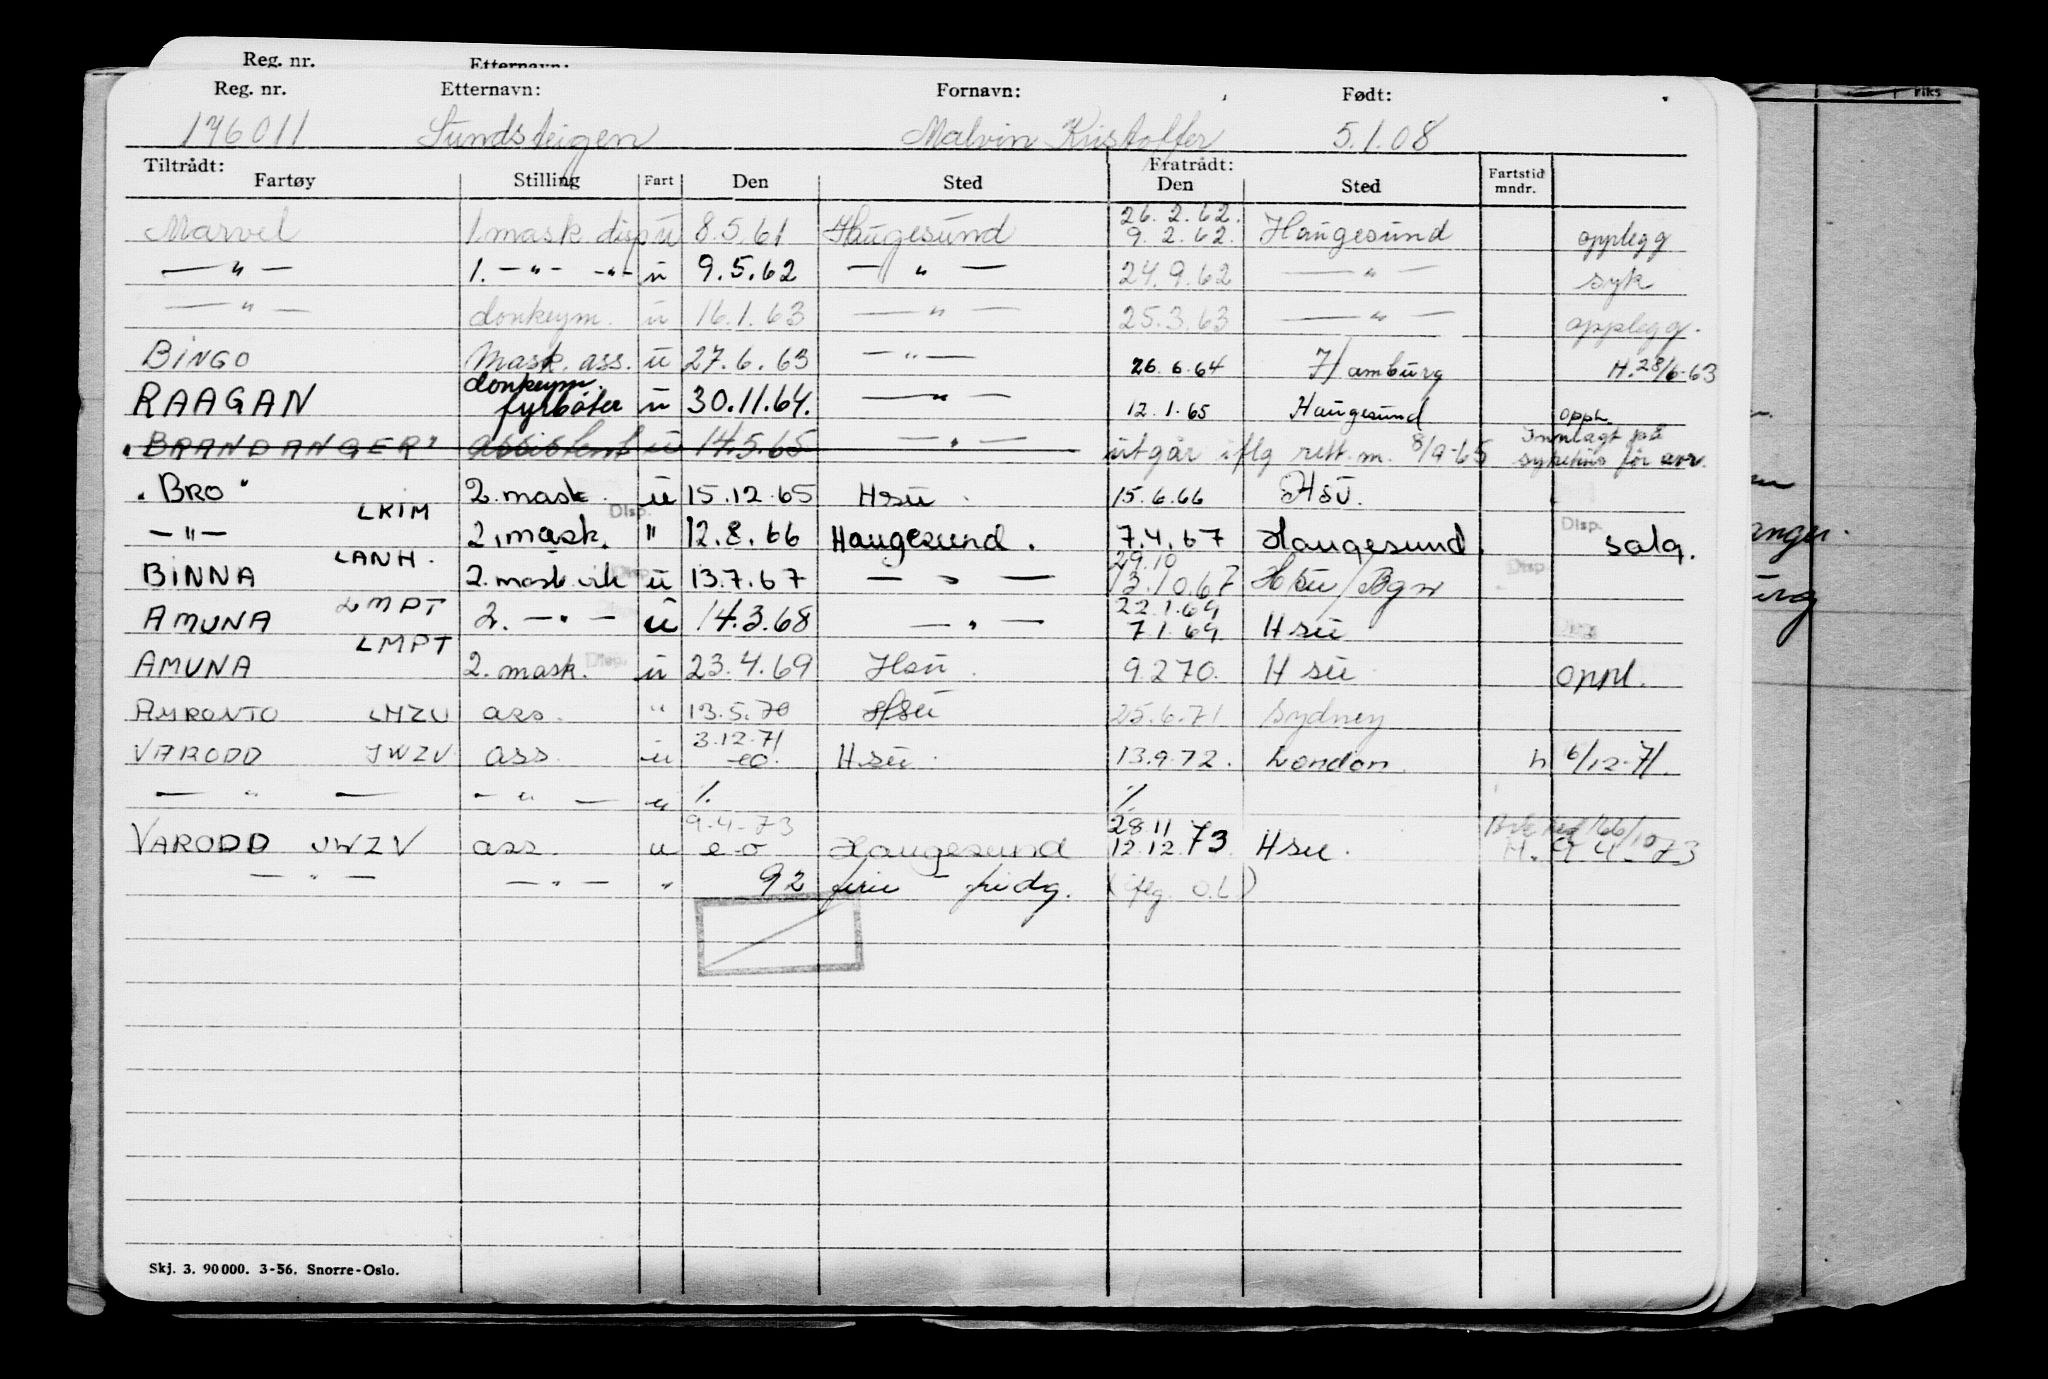 Reg. nr. Etternavn:
Reg. nr. Etternavn: Fornavn: Født:
146011 Sundsteigen Malvin Kristoffer 5.1.08
Tiltrådt: Fratrådt:
Fartøy Stilling Fart Den Sted Den Sted Fartstid mndr.
Marvel 1. mask. disp u 8.5.61 Haugesund 26.2.62. 9.2.62. Haugesund opplegg
— " — 1. — " — — " — u 9.5.62 — " — 24.9.62 — " — syk
— " — donkeym. u 16.1.63 — " — 25.3.63 — " — opplegg.
BINGO Mask. ass. u 27.6.63 — " — 26.6.64 Hamburg H. 28/6-63
RAAGAN donkeym. fyrbøter u 30.11.64. — " — 12.1.65 Haugesund oppl.
"BRANDANGER" assistent u 14.5.65 — " — utgår iflg rett. m. 8/9-65 Innlagt på sykehus før avr.
"BRO" LKIM 2. mask. u 15.12.65 Hsu. 15.6.66 Hsu.
— " — 2. mask. Disp. " 12.8.66 Haugesund. 7.4.67 Haugesund. Disp. salg.
BINNA LANH. 2. mask. vik u 13.7.67 — " — 29.10 13.10.67 Hsu/Bgn Disp.
AMUNA LMPT 2. — " — u 14.3.68 — " — 22.1.69 7.1.69. Hsu
AMUNA LMPT 2. mask. Disp. u 23.4.69 Hsu. 9.2.70. Hsu. oppl.
AMRONTO LMZU ass. " 13.5.70 Hsu 25.6.71 Sydney
VARODD JWZV ass. u 3.12.71 eo. Hsu. 13.9.72. London. h 6/12-71.
— " — — " — u % %
VARODD JWZV ass. u 9.4-73 e-o Haugesund 28.11 12.12.73 Hsu. H. 9.4-73
— " — — " — " 92 ferie - fridg. (iflg. o.l.)
Skj. 3. 90000. 3-56. Snorre-Oslo.